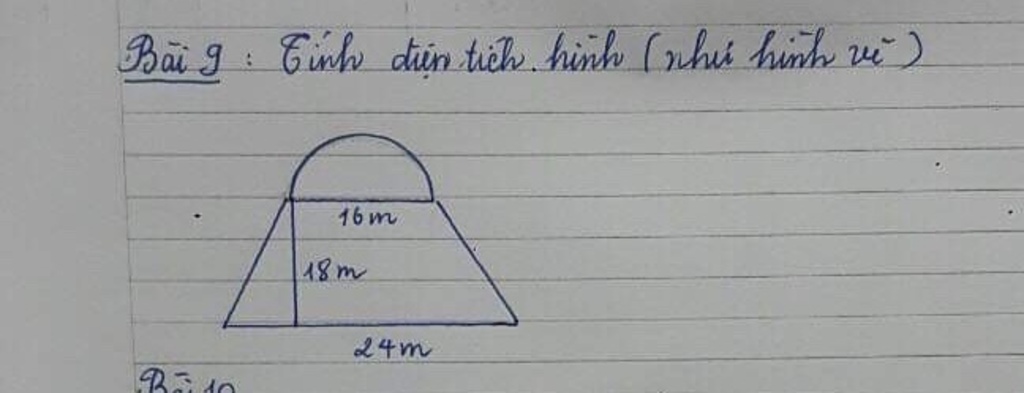 Bài 9 : Tính diện tích hình (như hình vẽ)
16m
18m
24m
Bài 10